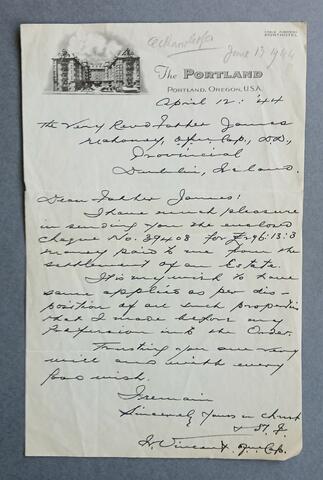 CABLE ADDRESS
PORTHOTEL
Acknowledged
June 13 1944
The PORTLAND
PORTLAND, OREGON, U.S.A.
April 12: 44
The Very Revd Father James
Mahoney, O.F.M. Cap., DD.,
Provincial
Dublin, Ireland.
Dear Father James:
I have much pleasure
in sending you the enclosed
cheque No. 39408 for £96:13:3
money paid to me from the
settlement of an Estate.
It is my wish to have
same applied as per dis-
position of all such properties
that I made before my
Profession into the Order.
Trusting you are very
well and with every
good wish.
I remain
Sincerely yours in Christ
& St. F.
Fr Vincent O.F.M. Cap.